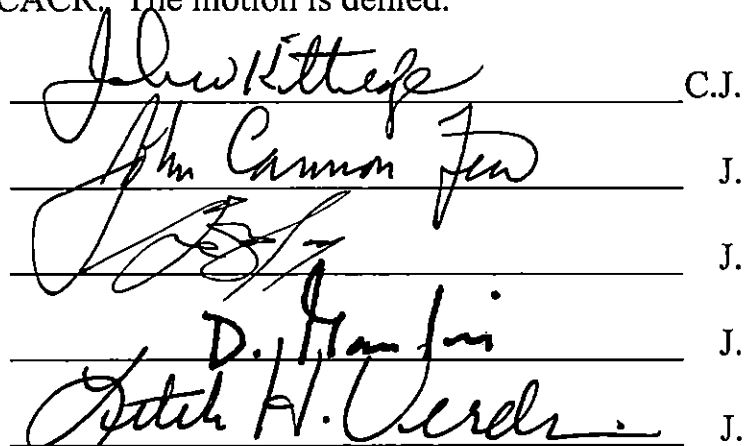 CACR. The motion is denied.
John Kittredge C.J.
John Cannon Few J.
J.
D. J.
H. J.